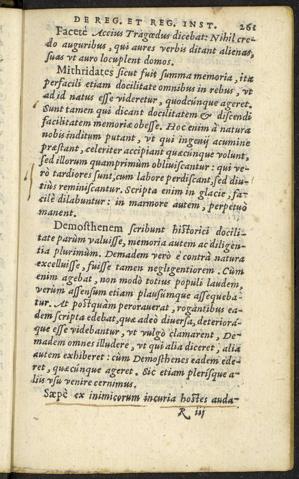 DE REG. ET REG. INST. 261
Facetè Accius Tragœdus dicebat: Nihil cre-
do auguribus, qui aures verbis ditant alienas,
suas vt auro locuplent domos.
Mithridates sicut fuit summa memoria, ita
perfacili etiam docilitate omnibus in rebus, vt
ad id natus esse videretur, quodcunque ageret.
Sunt tamen qui dicant docilitatem & discendi
facilitatem memoriæ obesse. Hoc enim à natura
nobis inditum putant, vt qui ingenij acumine
præstant, celeriter accipiant quæcunque volunt,
sed illorum quamprimùm obliuiscantur: qui ve-
rò tardiores sunt, cum labore perdiscant, sed diu-
tiùs reminiscantur. Scripta enim in glacie, fa-
cilè dilabuntur: in marmore autem, perpetuò
manent.
Demosthenem scribunt historici docili-
tate parùm valuisse, memoria autem ac diligen-
tia plurimùm. Demadem verò è contrà natura
excelluisse, fuisse tamen negligentiorem. Cùm
enim agebat, non modò totius populi laudem,
verum assensum etiam plausúmque assequeba-
tur. At postquàm perorauerat, rogantibus ea-
dem scripta edebat, quæ adeò diuersa, deteriorá-
que esse videbantur, vt vulgò clamarent, De-
madem omnes illudere, vt qui alia diceret, alia
autem exhiberet: cùm Demosthenes eadem ede-
ret, quæcúnque ageret. Sic etiam plerísque a-
liis vsu venire cernimus.
Sæpè ex inimicorum incuria hostes auda-
R iij